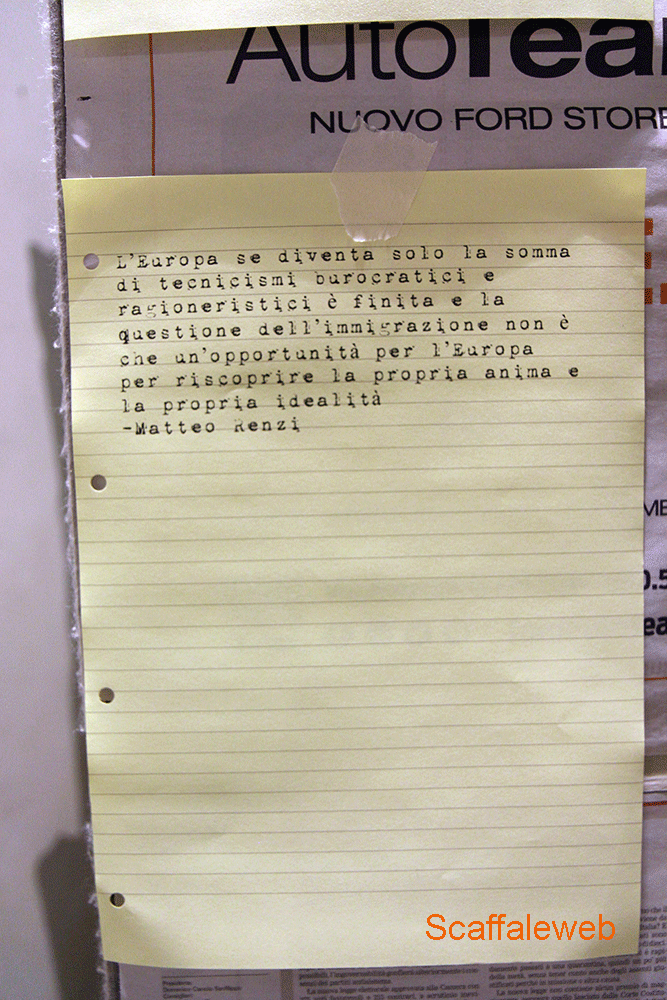 AutoTea
NUOVO FORD STORE
L'Europa se diventa solo la somma
di tecnicismi burocratici e
ragioneristici è finita e la
questione dell'immigrazione non è
che un'opportunità per l'Europa
per riscoprire la propria anima e
la propria idealità
-Matteo Renzi
Scaffaleweb